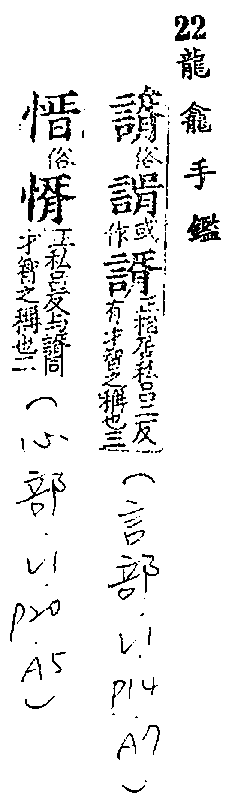 22龍龕手鑑
諝俗䛯或作諝正相居私呂二反有才智之稱也三(言部.V1.P14.A7)
㥠俗惰正私呂反与諝同才智之稱也二(心部.V1.P20.A5)